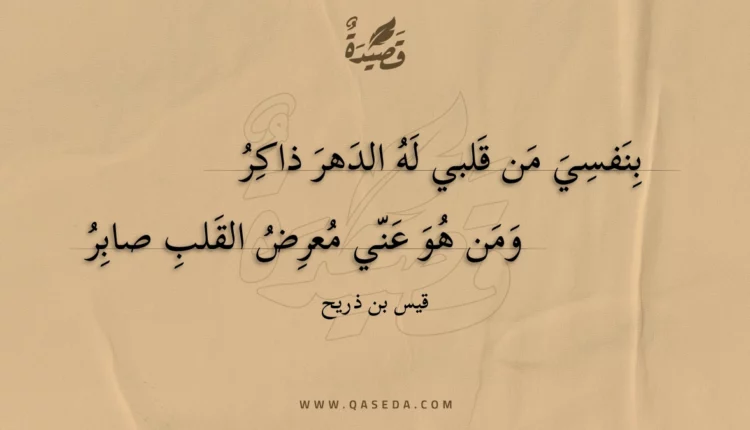 قَصِيدَةٌ
بِنَفسِيَ مَن قَلبي لَهُ الدَهرَ ذاكِرُ
وَمَن هُوَ عَنّي مُعرِضُ القَلبِ صابِرُ
قيس بن ذريح
WWW.QASEDA.COM